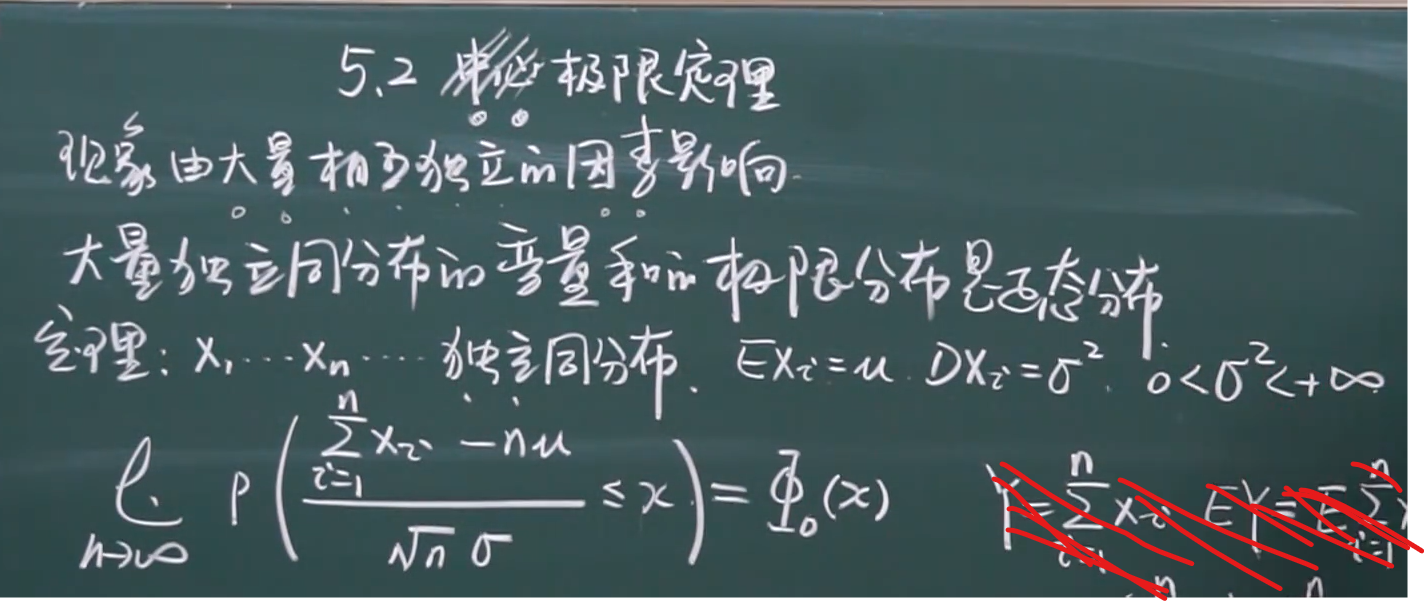 5.2 中心极限定理
现象由大量相互独立的因素影响.
大量独立同分布的变量和的极限分布是正态分布.
定理: X₁ ⋯ Xₙ ⋯ 独立同分布. EXᵢ=μ. DXᵢ=σ². 0<σ²<+∞
lim n→∞ P( (∑ᵢ₌₁ⁿ Xᵢ − nμ) / (√n σ) ≤ x ) = Φ₀(x)